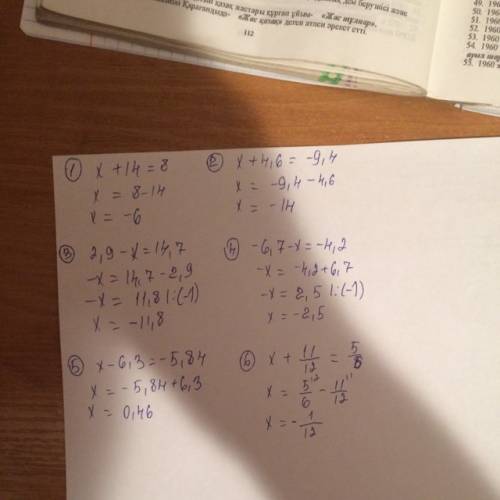 қазақ жастары құрған ұйым- «Жас тұлпар»,
«Жас қазақ» деген атпен әрекет етті.
112
49. 196
50. 196
51. 1960
52. 1960
53. 1960
54. 1960
55. 1960
① x + 14 = 8
x = 8 - 14
x = -6
② x + 4,6 = -9,4
x = -9,4 - 4,6
x = -14
③ 2,9 - x = 14,7
-x = 14,7 - 2,9
-x = 11,8 |:(-1)
x = -11,8
④ -6,7 - x = -4,2
-x = -4,2 + 6,7
-x = 2,5 |:(-1)
x = -2,5
⑤ x - 6,3 = -5,84
x = -5,84 + 6,3
x = 0,46
⑥ x + 11/12 = 5/6
x = 5/6 - 11/12
x = -1/12